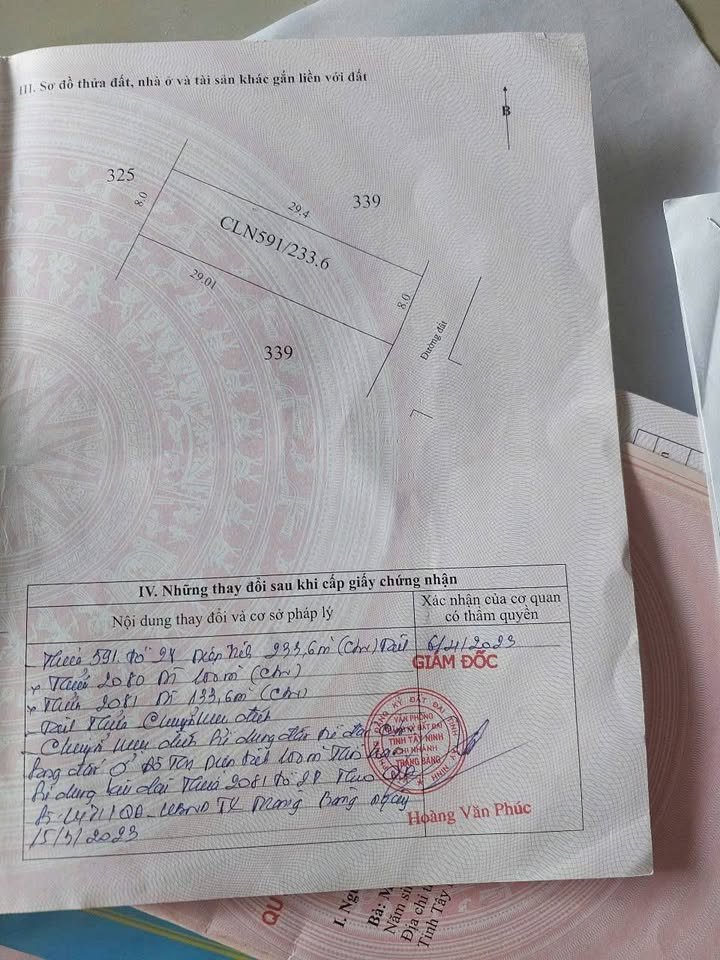 III. Sơ đồ thửa đất, nhà ở và tài sản khác gắn liền với đất
B
325
8.0
29.4
339
CLN591/233.6
29.01
8.0
339
Đường đất
IV. Những thay đổi sau khi cấp giấy chứng nhận
Nội dung thay đổi và cơ sở pháp lý
Xác nhận của cơ quan
có thẩm quyền
- Thửa 591 233,6m² (CLN)
6/4/2023
GIÁM ĐỐC
+ Thửa 2080 DT 100m² (CLN)
+ Thửa 2081 DT 133,6m² (CLN)
Chuyển mục đích
- Chuyển mục đích sử dụng đất
sang đất ở 100m²
sử dụng lâu dài Thửa 2081
QĐ-UBND TX Trảng Bàng ngày
15/3/2023
VĂN PHÒNG
ĐĂNG KÝ ĐẤT ĐAI
TỈNH TÂY NINH
CHI NHÁNH
TRẢNG BÀNG
Hoàng Văn Phúc
QU
I. Ngư
Bà:
Năm sin
Địa chỉ t
Tỉnh Tây